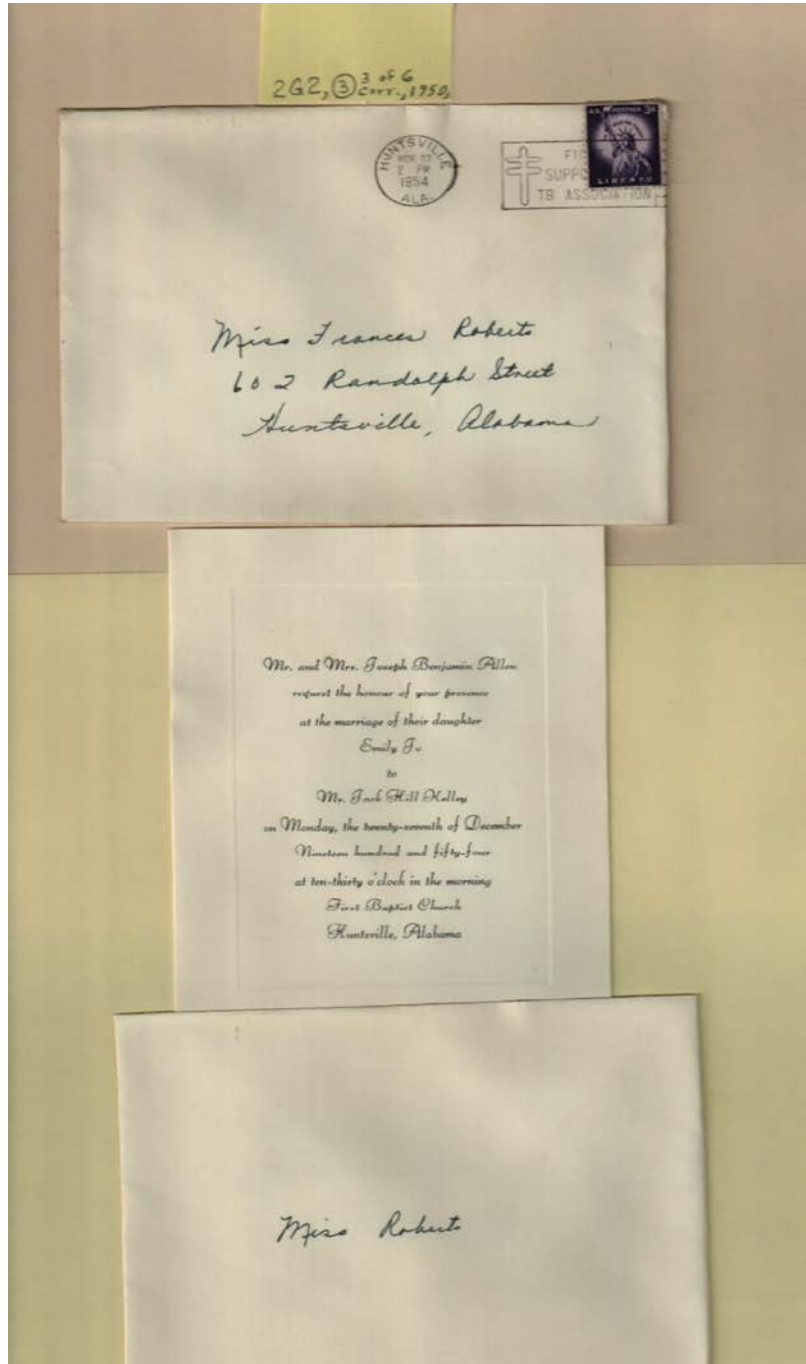 2G2, ③ 3 of 6
Corr., 1950,
HUNTSVILLE
2 PM
1954
ALA.
U.S. POSTAGE 3¢
LIBERTY
SUPPO
TB ASSOCIATION
Miss Frances Roberts
602 Randolph Street
Huntsville, Alabama
Mr. and Mrs. Joseph Benjamin Allen
request the honour of your presence
at the marriage of their daughter
Emily Jo
to
Mr. Jack Hill Kelley
on Monday, the twenty-seventh of December
Nineteen hundred and fifty-four
at ten-thirty o'clock in the morning
First Baptist Church
Huntsville, Alabama
Miss Roberts